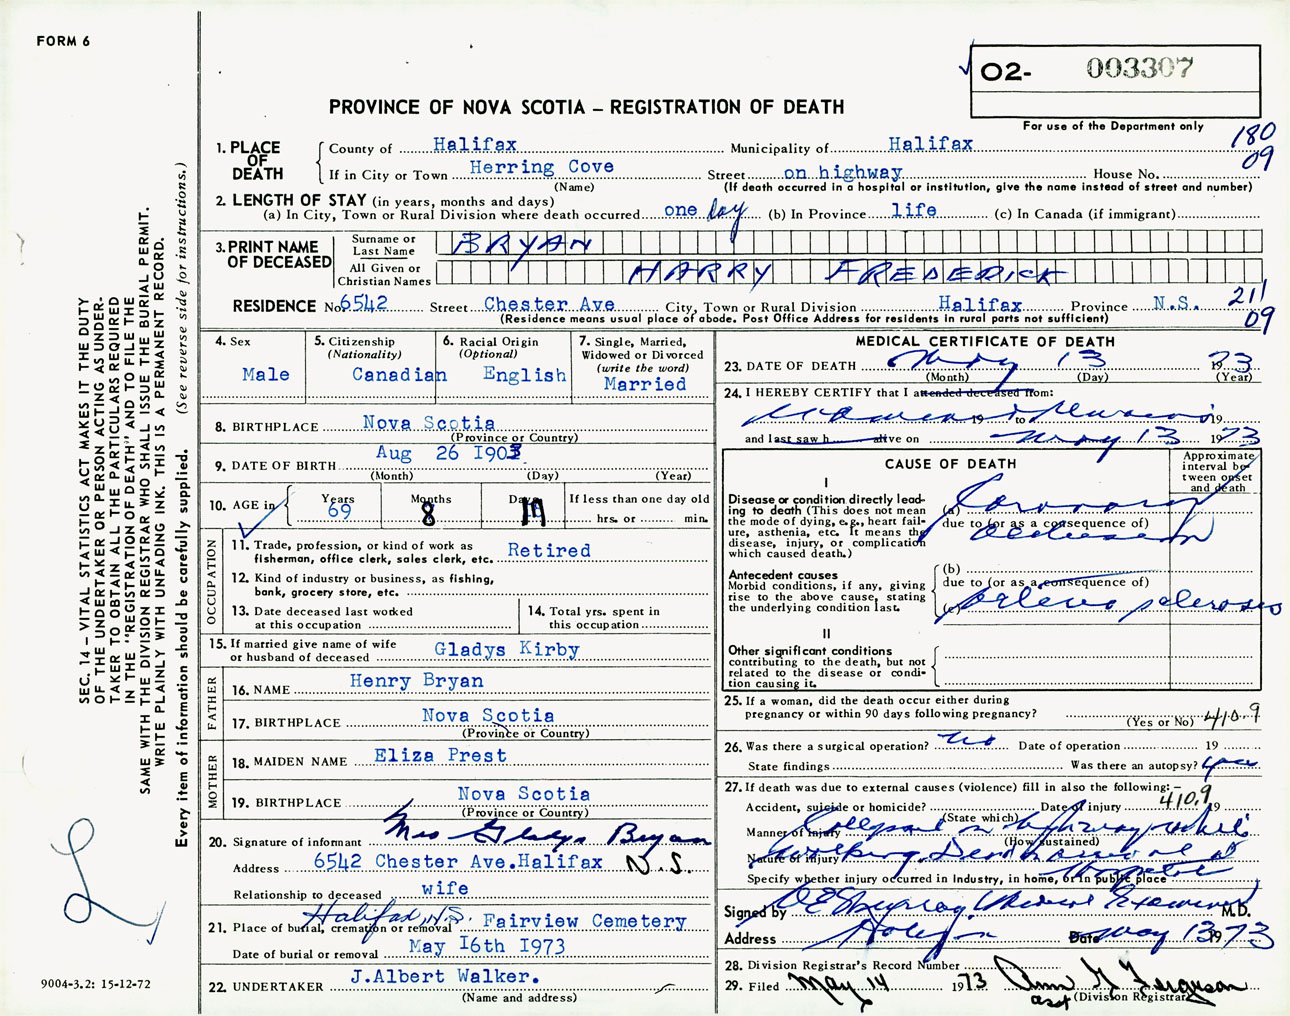 FORM 6
O2- 003307
PROVINCE OF NOVA SCOTIA – REGISTRATION OF DEATH
For use of the Department only
180
09
1. PLACE OF DEATH
County of Halifax Municipality of Halifax
If in City or Town Herring Cove Street on highway House No.
(Name) (If death occurred in a hospital or institution, give the name instead of street and number)
2. LENGTH OF STAY (in years, months and days)
(a) In City, Town or Rural Division where death occurred one day (b) In Province life (c) In Canada (if immigrant)
3. PRINT NAME OF DECEASED
Surname or Last Name BRYAN
All Given or Christian Names HARRY FREDERICK
RESIDENCE No 6542 Street Chester Ave City, Town or Rural Division Halifax Province N.S.
(Residence means usual place of abode. Post Office Address for residents in rural parts not sufficient)
211
09
4. Sex
Male
5. Citizenship
(Nationality)
Canadian
6. Racial Origin
(Optional)
English
7. Single, Married,
Widowed or Divorced
(write the word)
Married
8. BIRTHPLACE Nova Scotia
(Province or Country)
9. DATE OF BIRTH Aug 26 1903
(Month) (Day) (Year)
10. AGE in Years 69 Months 8 Days If less than one day old
hrs. or min.
OCCUPATION
11. Trade, profession, or kind of work as
fisherman, office clerk, sales clerk, etc. Retired
12. Kind of industry or business, as fishing,
bank, grocery store, etc.
13. Date deceased last worked
at this occupation
14. Total yrs. spent in
this occupation
15. If married give name of wife
or husband of deceased Gladys Kirby
FATHER
16. NAME Henry Bryan
17. BIRTHPLACE Nova Scotia
(Province or Country)
MOTHER
18. MAIDEN NAME Eliza Prest
19. BIRTHPLACE Nova Scotia
(Province or Country)
20. Signature of informant Mrs Gladys Bryan
Address 6542 Chester Ave.Halifax N.S.
Relationship to deceased wife
21. Place of burial, cremation or removal Halifax, N.S. Fairview Cemetery
Date of burial or removal May 16th 1973
22. UNDERTAKER J.Albert Walker.
(Name and address)
MEDICAL CERTIFICATE OF DEATH
23. DATE OF DEATH May 13 1973
(Month) (Day) (Year)
24. I HEREBY CERTIFY that I attended deceased from:
19 to 19
and last saw h alive on May 13 1973
CAUSE OF DEATH
Approximate
interval be-
tween onset
and death
I
Disease or condition directly lead-
ing to death (This does not mean
the mode of dying, e.g., heart fail-
ure, asthenia, etc. It means the
disease, injury, or complication
which caused death.)
(a) Coronary
due to (or as a consequence of)
Occlusion
Antecedent causes
Morbid conditions, if any, giving
rise to the above cause, stating
the underlying condition last.
(b)
due to (or as a consequence of)
(c) arterio sclerosis
II
Other significant conditions
contributing to the death, but not
related to the disease or condi-
tion causing it.
25. If a woman, did the death occur either during
pregnancy or within 90 days following pregnancy?
(Yes or No) 410.9
26. Was there a surgical operation? no Date of operation 19
State findings Was there an autopsy? yes
27. If death was due to external causes (violence) fill in also the following:–
410.9
Accident, suicide or homicide? Date of injury 19
(State which)
Manner of injury Collapsed on highway while
(How sustained)
Nature of injury walking. Dead on arrival at
Specify whether injury occurred in Industry, in home, or in public place Hospital
Signed by Medical Examiner M.D.
Address Halifax Date May 13 1973
28. Division Registrar's Record Number
29. Filed May 14 1973 Ann G Ferguson
asst (Division Registrar)
SEC. 14 – VITAL STATISTICS ACT MAKES IT THE DUTY
OF THE UNDERTAKER OR PERSON ACTING AS UNDER-
TAKER TO OBTAIN ALL THE PARTICULARS REQUIRED
IN THE "REGISTRATION OF DEATH" AND TO FILE THE
SAME WITH THE DIVISION REGISTRAR WHO SHALL ISSUE THE BURIAL PERMIT.
WRITE PLAINLY WITH UNFADING INK. THIS IS A PERMANENT RECORD.
Every item of information should be carefully supplied. (See reverse side for instructions.)
9004-3.2: 15-12-72